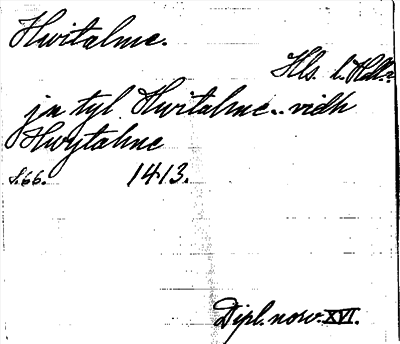 Hwitalme.
Hls. l.
jn tyl Hwitalme.. vidh
Hwytalme
S.66. 1413.
Dipl. norv. XVI.